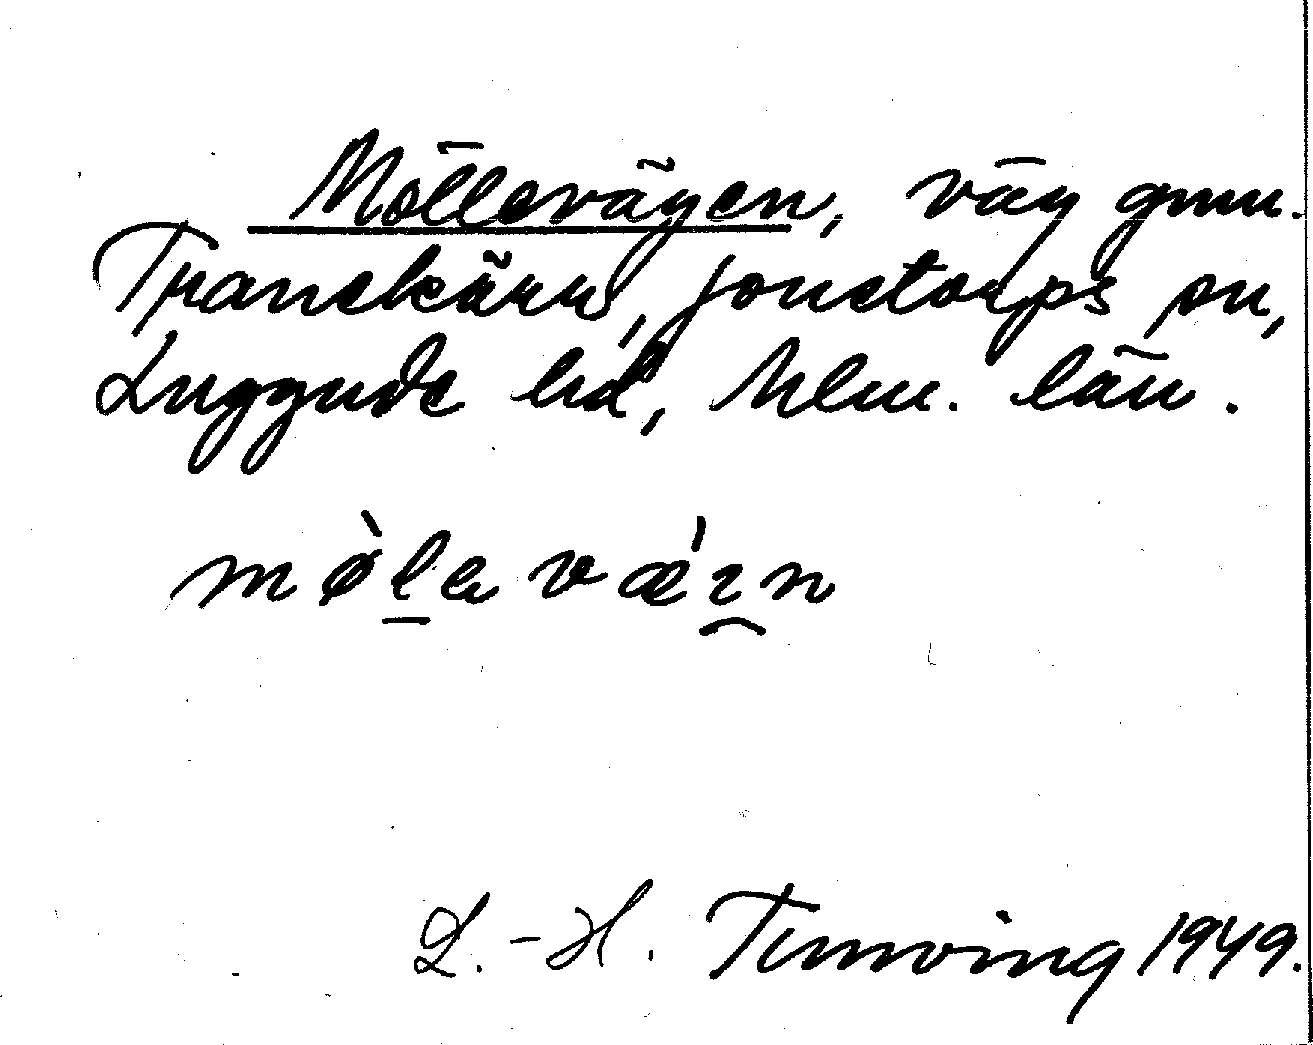 Möllevägen, väg gnm.
Tranekärr, Jonstorps sn,
Luggude hd, Mlm. län.
mø̀lavǽɪn
L.-H. Tunving 1949.